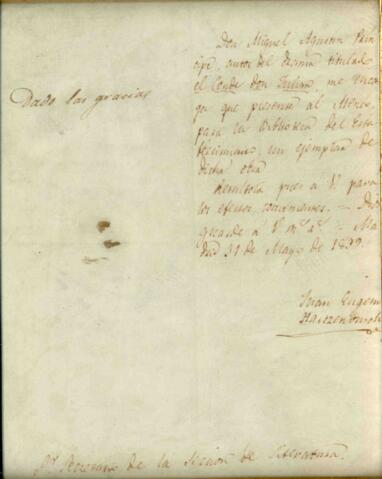 Don Miguel Agustin Prin
cipe, autor del drama titulad
el Conde Don Julian, me encar
ga que presente al Ateneo
para la Biblioteca del Esta
blecimiento, un ejemplar de
dicha obra.
Remitola pues a V. para
los efectos convenientes. — Dios
guarde a V. m.s a.s — Ma
drid 31 de Mayo de 1839.
Juan Eugenio
Hartzenbusch
Dado las gracias
Sr. Secretario de la Seccion de Literatura.